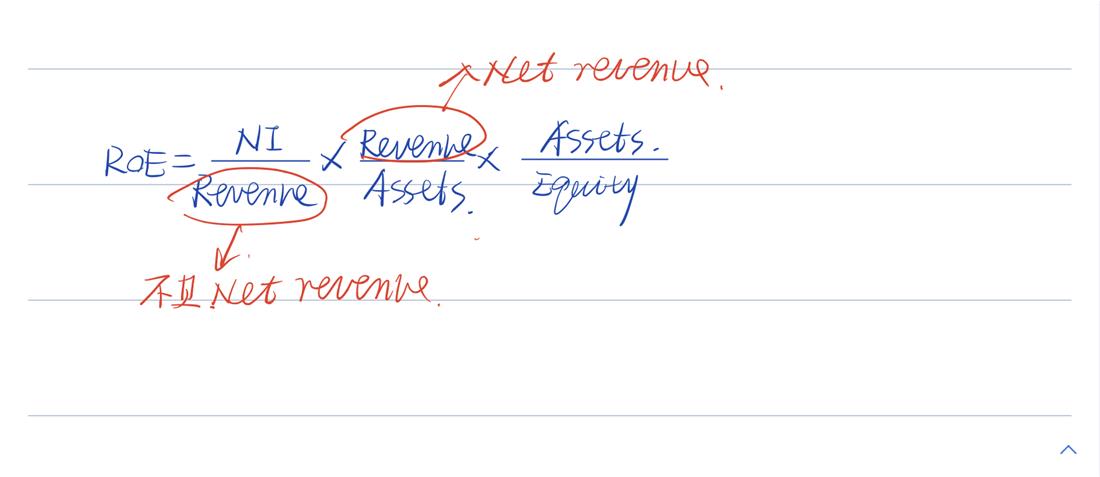 Net revenue.
ROE = NI / Revenue × Revenue / Assets. × Assets. / Equity
不是 Net revenue.